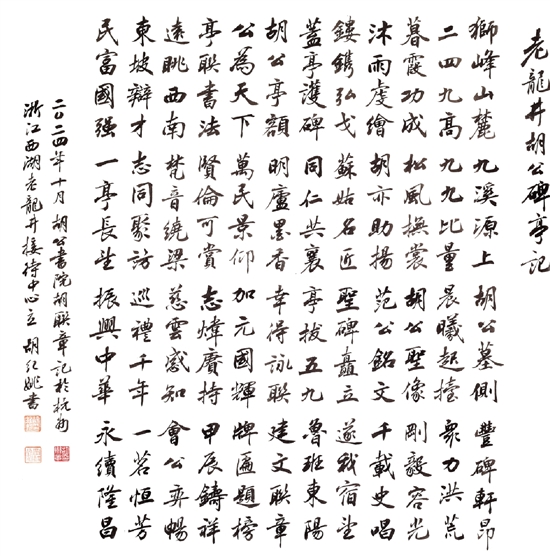 老龍井胡公碑亭記
獅峰山麓九溪源上胡公墓側豐碑軒昂
二四九高九九比量晨曦起擡衆力洪荒
暮霞功成松風撫裳胡公聖像剛毅容光
沐雨虔繪胡亦助揚范公銘文千載史唱
鏤鐫弘戈蘇姑名匠聖碑矗立遂我宿望
蓋亭護碑同仁共襄亭拔五九魯班東陽
胡公亭額明廬墨香幸得詠聯建文聯章
公為天下萬民景仰加元國輝牌匾題榜
亭聯書法賢倫可賞志煒賡持甲辰鑄祥
遠眺西南梵音繞梁慈雲感知會公弈暢
東坡辯才志同聚訪巡禮千年一茗恒芳
民富國强一亭長望振興中華永續隆昌
二〇二四年十月胡公書院胡聯章記於杭州
浙江西湖老龍井接待中心立胡書